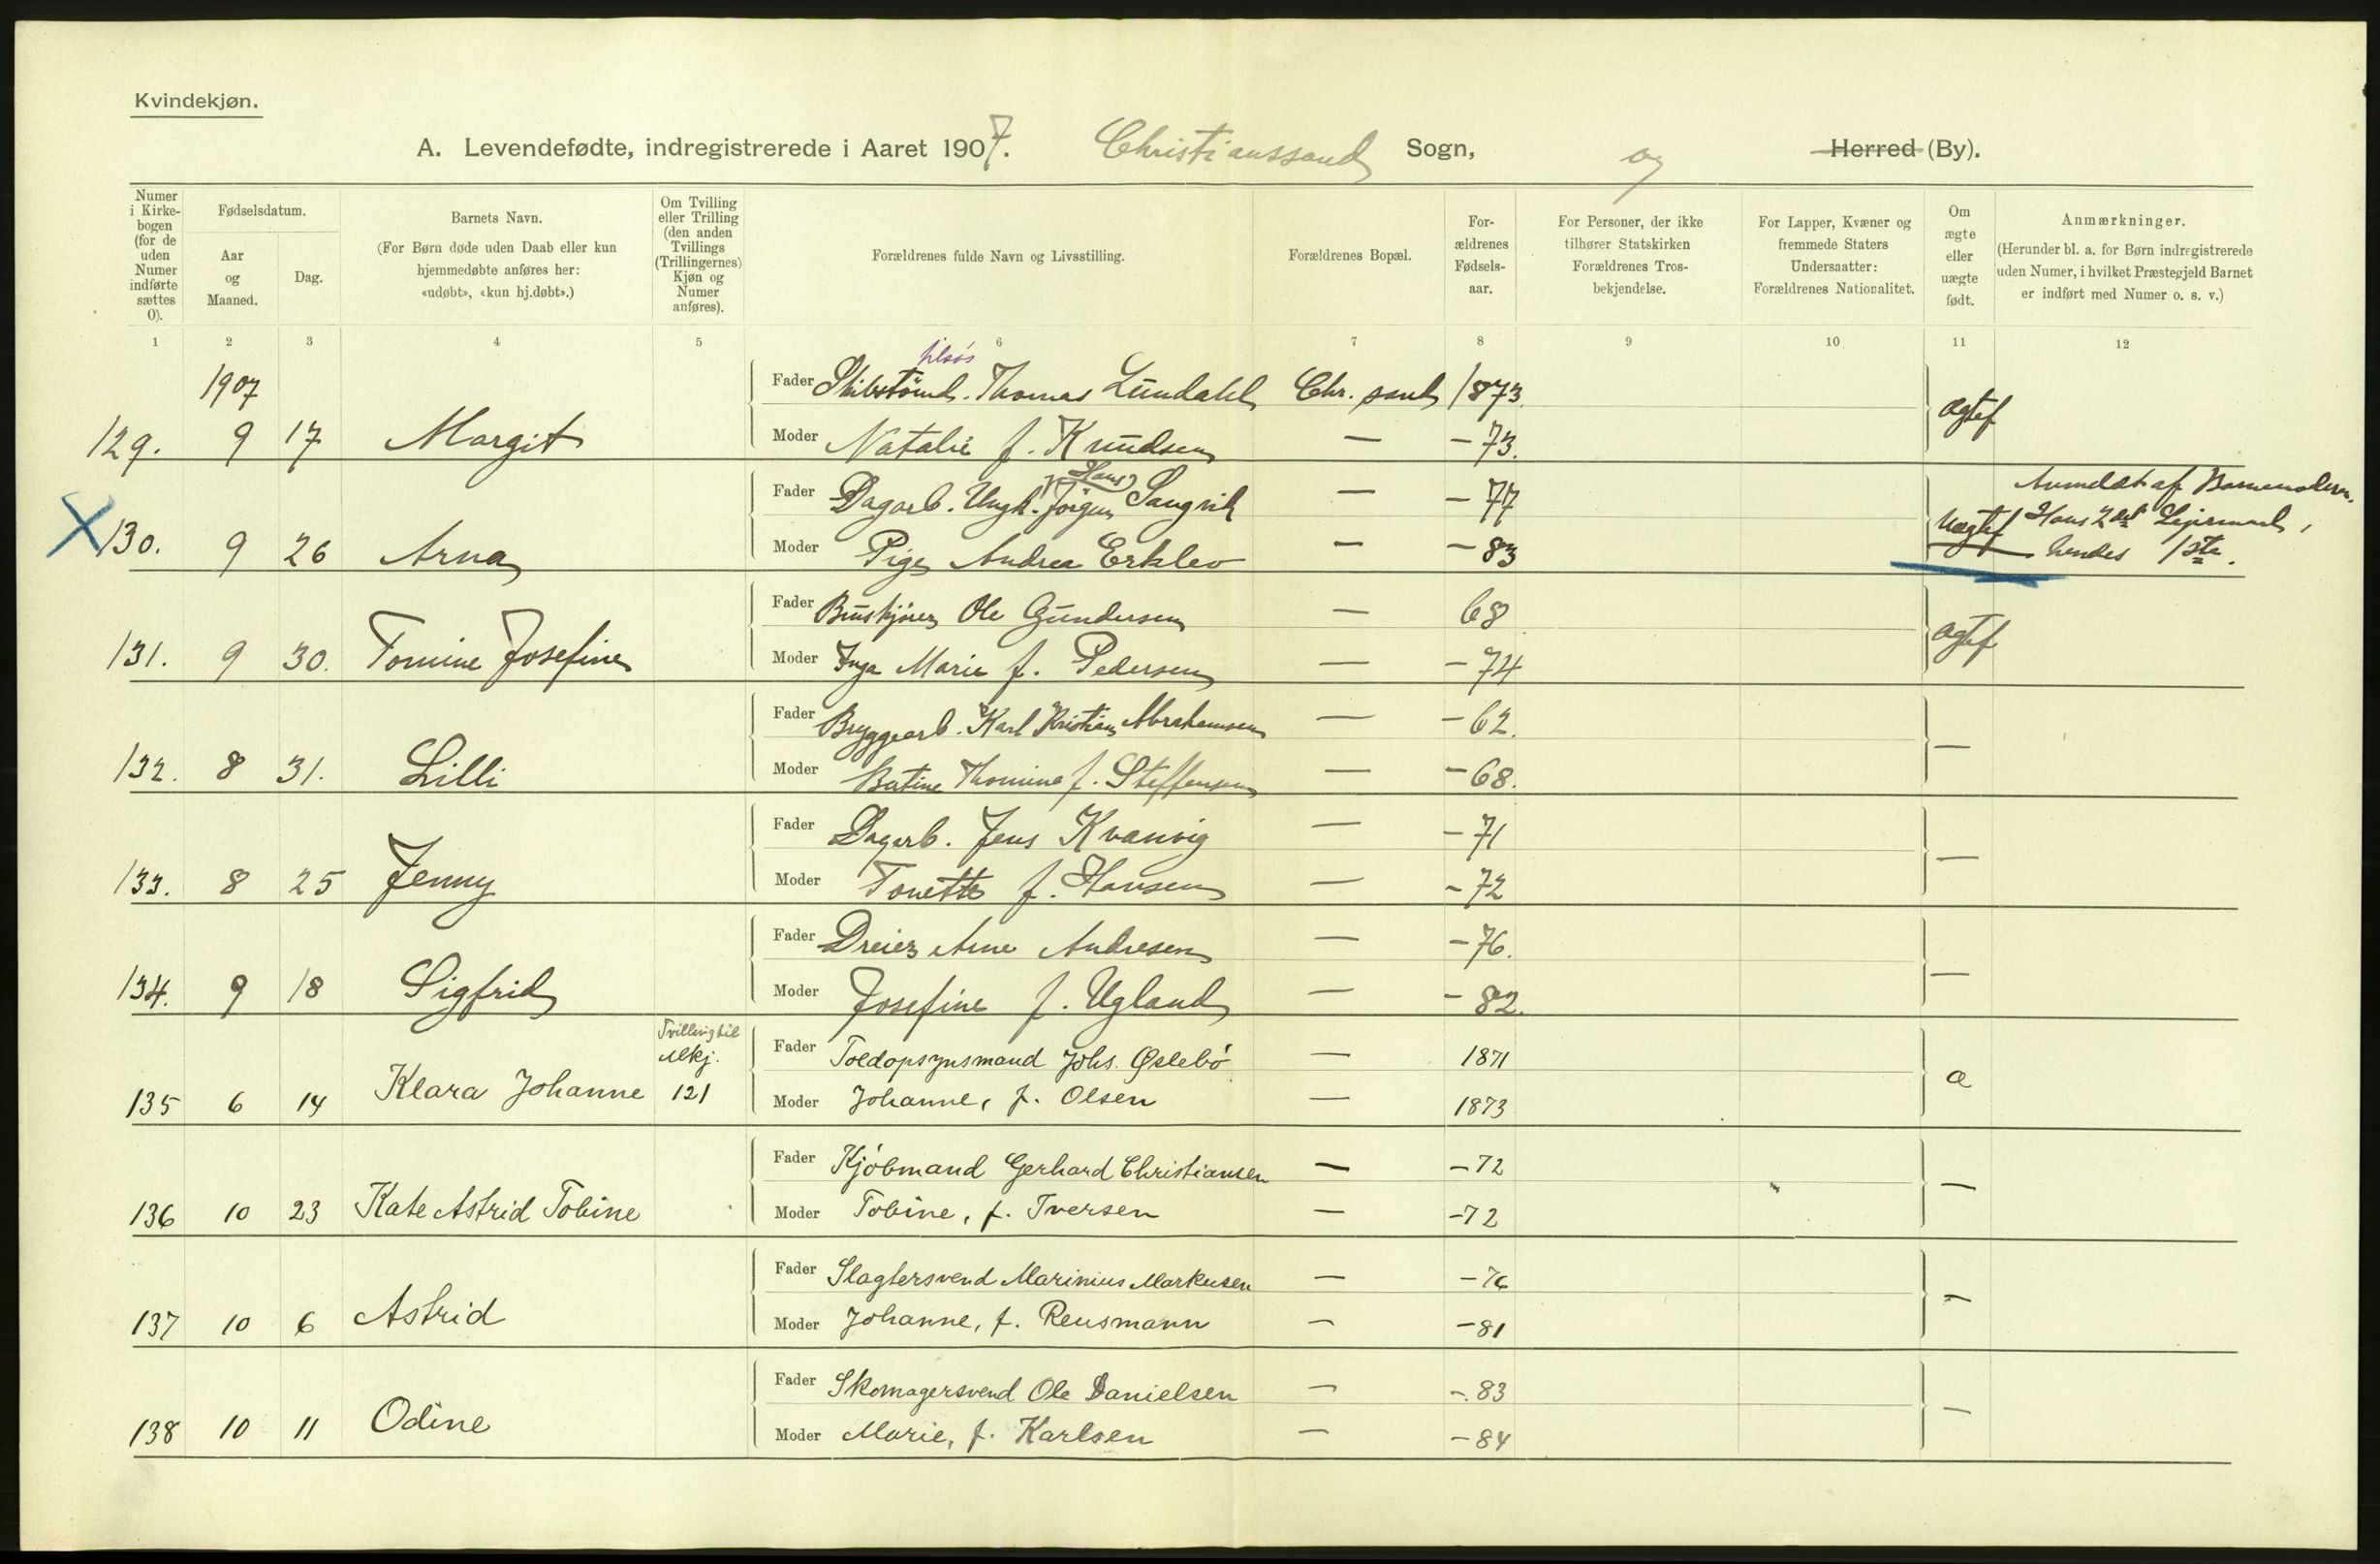 Kvindekjøn.
A. Levendefødte, indregistrerede i Aaret 1907. Christianssand Sogn, og Herred (By).
Numer i Kirke-bogen (for de uden Numer indførte sættes 0).
Fødselsdatum.
Aar og Maaned.
Dag.
Barnets Navn.
(For Børn døde uden Daab eller kun hjemmedøbte anføres her: «udøbt», «kun hj.døbt».)
Om Tvilling eller Trilling (den anden Tvillings (Trillingernes) Kjøn og Numer anføres).
Forældrenes fulde Navn og Livsstilling.
Forældrenes Bopæl.
For-ældrenes Fødsels-aar.
For Personer, der ikke tilhører Statskirken Forældrenes Tros-bekjendelse.
For Lapper, Kvæner og fremmede Staters Undersaatter: Forældrenes Nationalitet.
Om ægte eller uægte født.
Anmærkninger.
(Herunder bl. a. for Børn indregistrerede uden Numer, i hvilket Præstegjeld Barnet er indført med Numer o. s. v.)
1 2 3 4 5 6 7 8 9 10 11 12
1907
tilsøs
Fader Skibstømd. Thomas Lundahl Chr. sand 1873. ægtef
129. 9 17 Margit Moder Natalie f. Knudsen — - 73.
Fader Dagarb. Ungk. Jørgen Hans Sangvik — - 77 Anmeldt af Barnemoderen.
X 130. 9 26 Arna Moder Pige Andrea Erklev — - 83 uægtef Hans 2det Lejermaal, hendes 1ste.
Fader Buskjører Ole Gundersen — 68 ægtef
131. 9 30. Tomine Josefine Moder Inga Marie f. Pedersen — - 74
Fader Bryggearb. Karl Kristian Abrahamsen — - 62. —
132. 8 31. Lilli Moder Thomine f. Steffensen — - 68.
Fader Dagarb. Jens Kvanvig — - 71 —
133. 8 25 Jenny Moder Tonette f. Hansen — - 72
Fader Dreier Arne Andresen — - 76. —
134. 9 18 Sigfrid Moder Josefine f. Ugland — - 82.
Tvilling til Mkj. Fader Toldopsynsmand Johs. Øslebø — 1871 æ
135 6 14 Klara Johanne 121 Moder Johanne, f. Olsen — 1873
Fader Kjøbmand Gerhard Christiansen — - 72 —
136 10 23 Kate Astrid Tobine Moder Tobine, f. Iversen — - 72
Fader Slagtersvend Marinius Markusen — - 76 —
137 10 6 Astrid Moder Johanne, f. Reusmann — - 81
Fader Skomagersvend Ole Danielsen — - 83 —
138 10 11 Odine Moder Marie, f. Karlsen — - 84